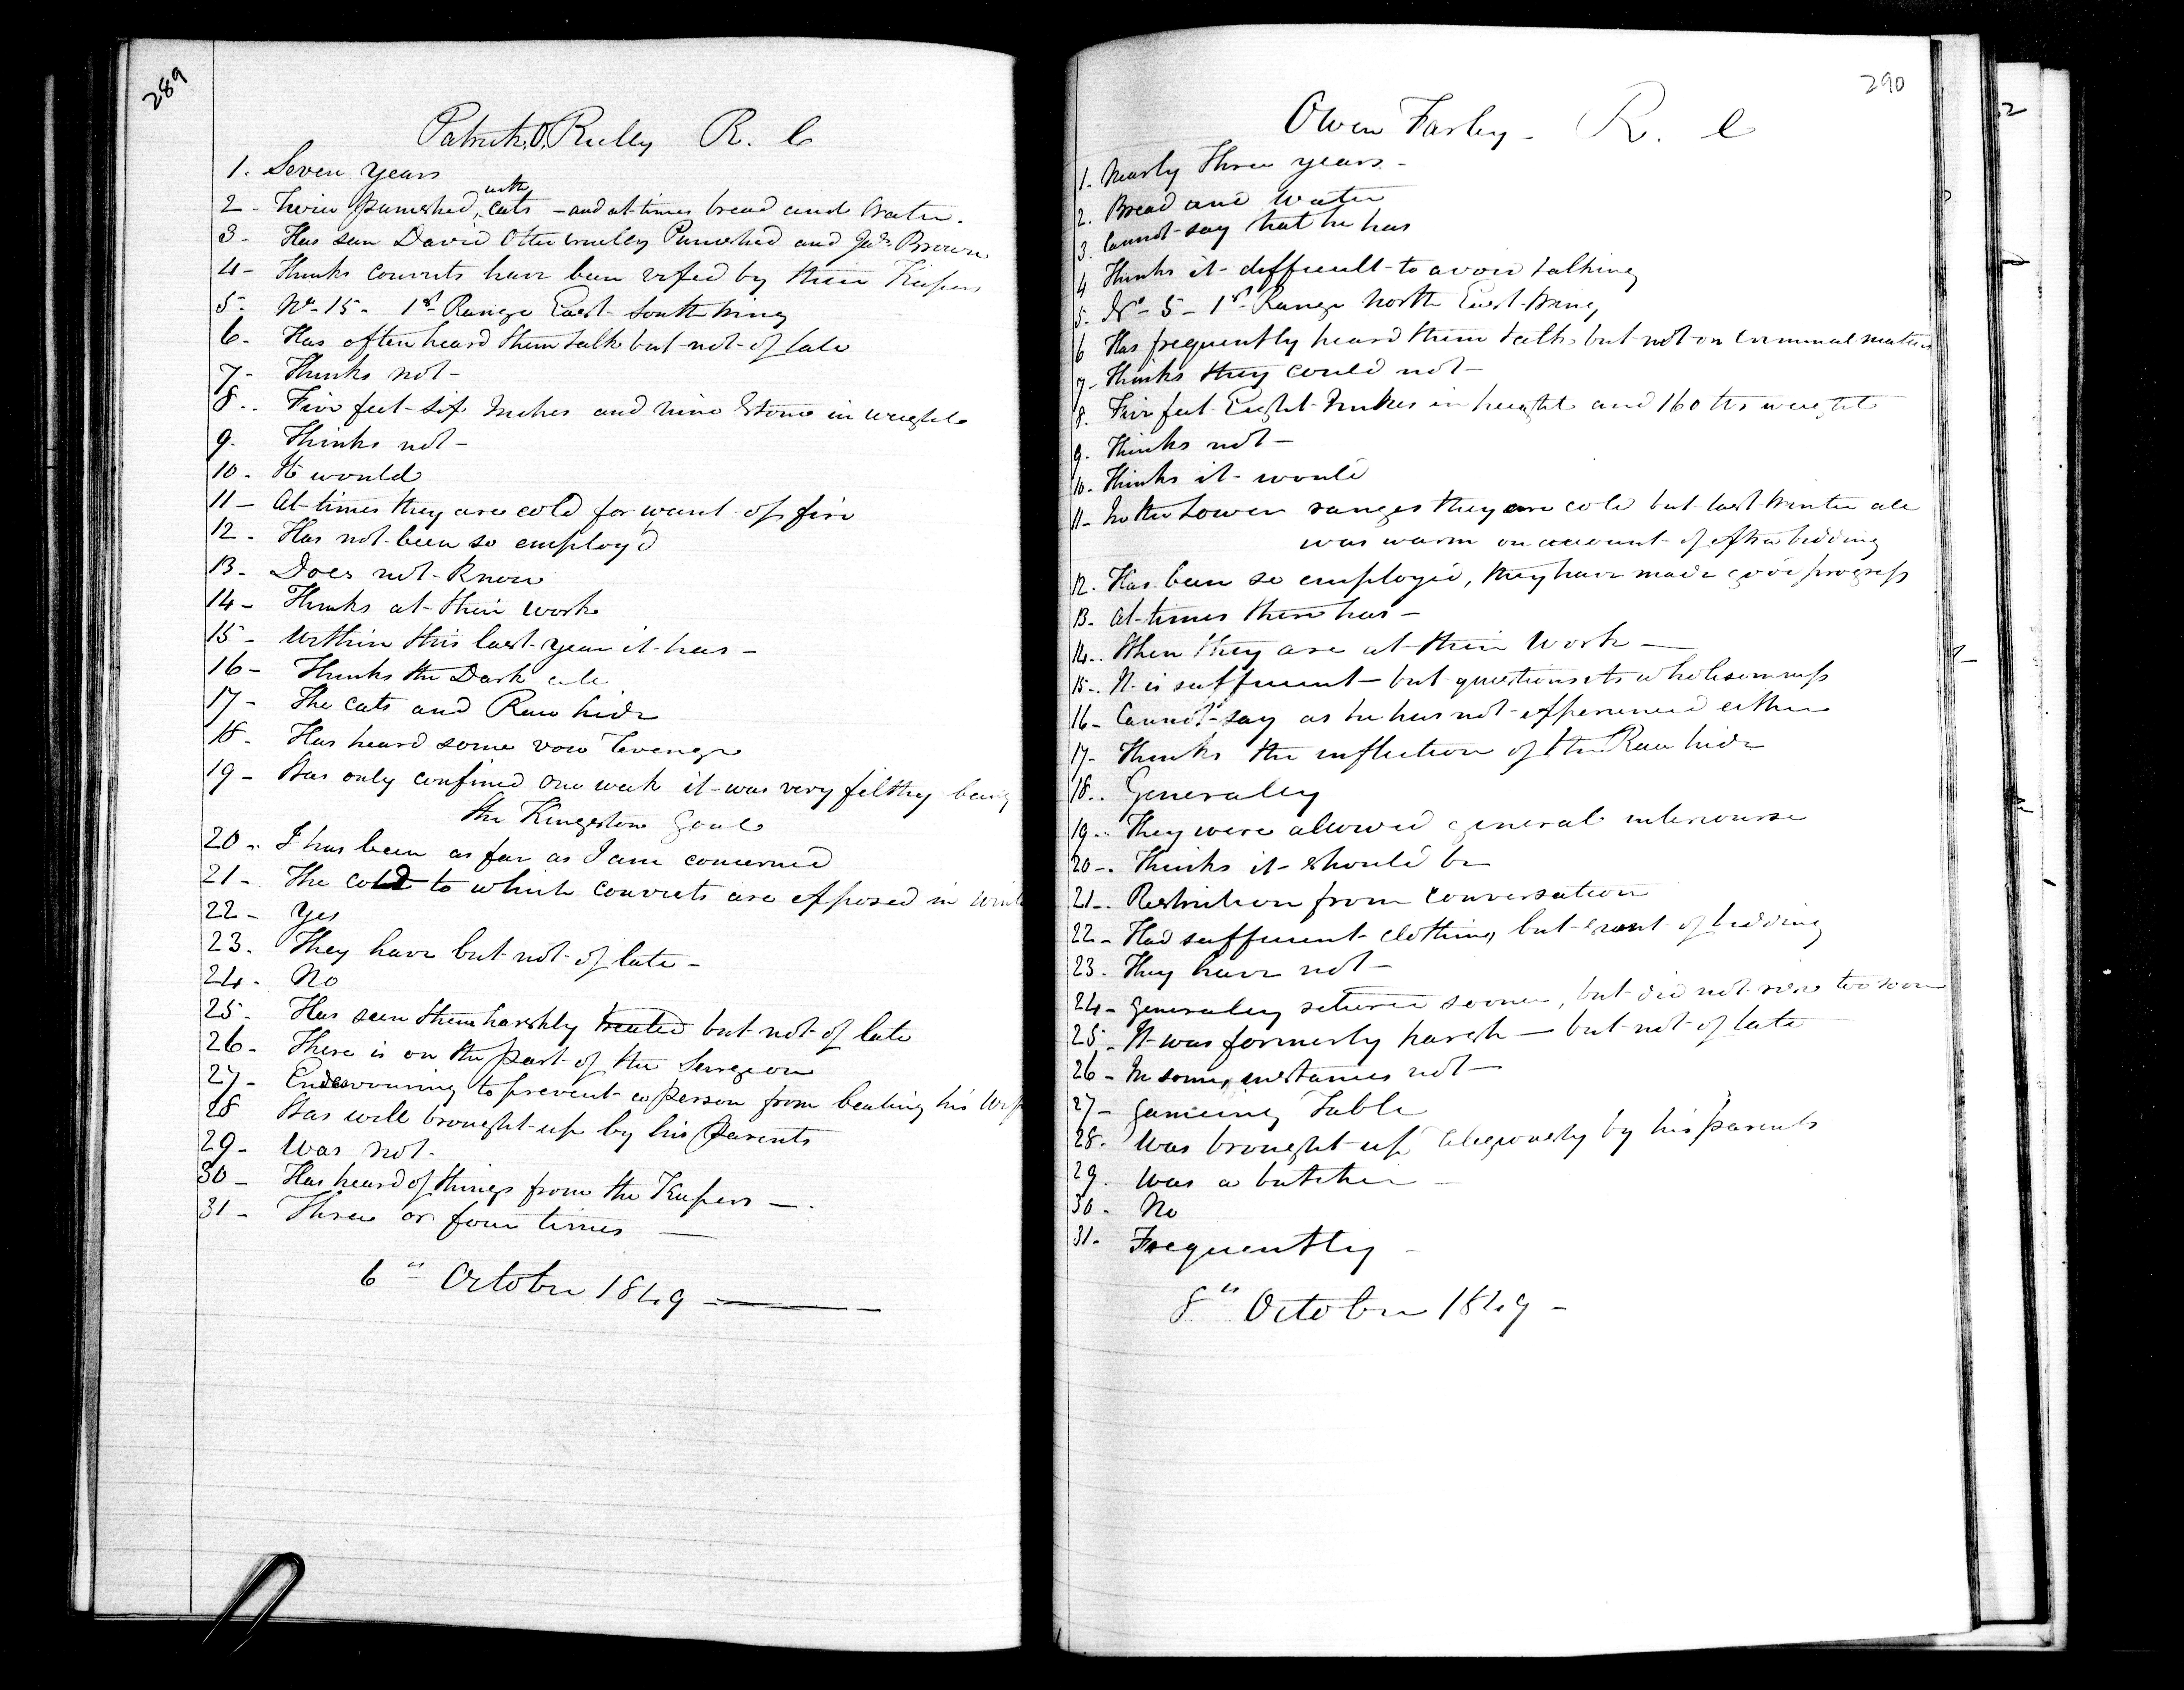 289
Patrick O, Reilly R. C
1. Seven years
2 - Twice punished, with cats - and at times bread and Water.
3 - Has seen David Otter cruelly Punished and Jas. Brown
4 - Thinks convicts have been vexed by their Keepers
5 - No - 15 - 1st Range East - South Wing
6 - Has often heard them talk but not of late
7 - Thinks not -
8 .. Five feet six Inches and nine Stone in weight
9. Thinks not -
10 - It would
11 - At times they are cold for want of fire
12 - Has not been so employ'd
13 - Does not Know
14 - Thinks at their work
15 - Within this last year it has -
16 - Thinks the Dark cell
17 - The cats and Raw hide
18 - Has heard some vow Revenge
19 - Was only confined one week it was very filthy being
the Kingston Goal
20 - I has been as far as I am concerned
21 - The cold to which convicts are exposed in
22 - Yes
23. They have but not of late -
24 - No
25. Has seen them harshly treated but not of late
26 - There is on the part of the Surgeon
27 - Endeavouring to prevent a person from beating his Wife
28 Was well brought up by his Parents
29 - Was not.
30 - Has heard of things from the Keepers -.
31 - Three or four times -
6th October 1849 -
290
Owen Farley - R. C
1. Nearly Three years -
2. Bread and Water
3. Cannot say that he has
4 Thinks it difficult to avoid talking
5. No - 5 - 1st Range North East Wing
6 Has frequently heard them talk but not on criminal matters
7 - Thinks they could not -
8. Five feet Eight Inches in height and 160 lbs weight
9. Thinks not -
10. Thinks it would
11 - In the Lower ranges they are cold but last Winter all
was warm on account of extra bedding
12. Has been so employed, they have made good progress
13. At times there has -
14.. When they are at their work -
15 .. It is sufficient - but questions its wholesomness
16 - Cannot say as he has not experienced either
17 - Thinks the infliction of the Raw hide
18.. Generaley
19 - They were allowed general intercourse
20 - Thinks it should be
21 - Restriction from conversation
22 - Had sufficient clothing but want of bedding
23. They have not -
24 - Generaley retired sooner, but did not rise too soon
25 - It was formerly harsh - but not of late
26 - In some, instances not -
27 - Gameing Table
28. Was brought up religiously by his parents
29. Was a butcher -
30. No
31. Frequently -
8th October 1849 -